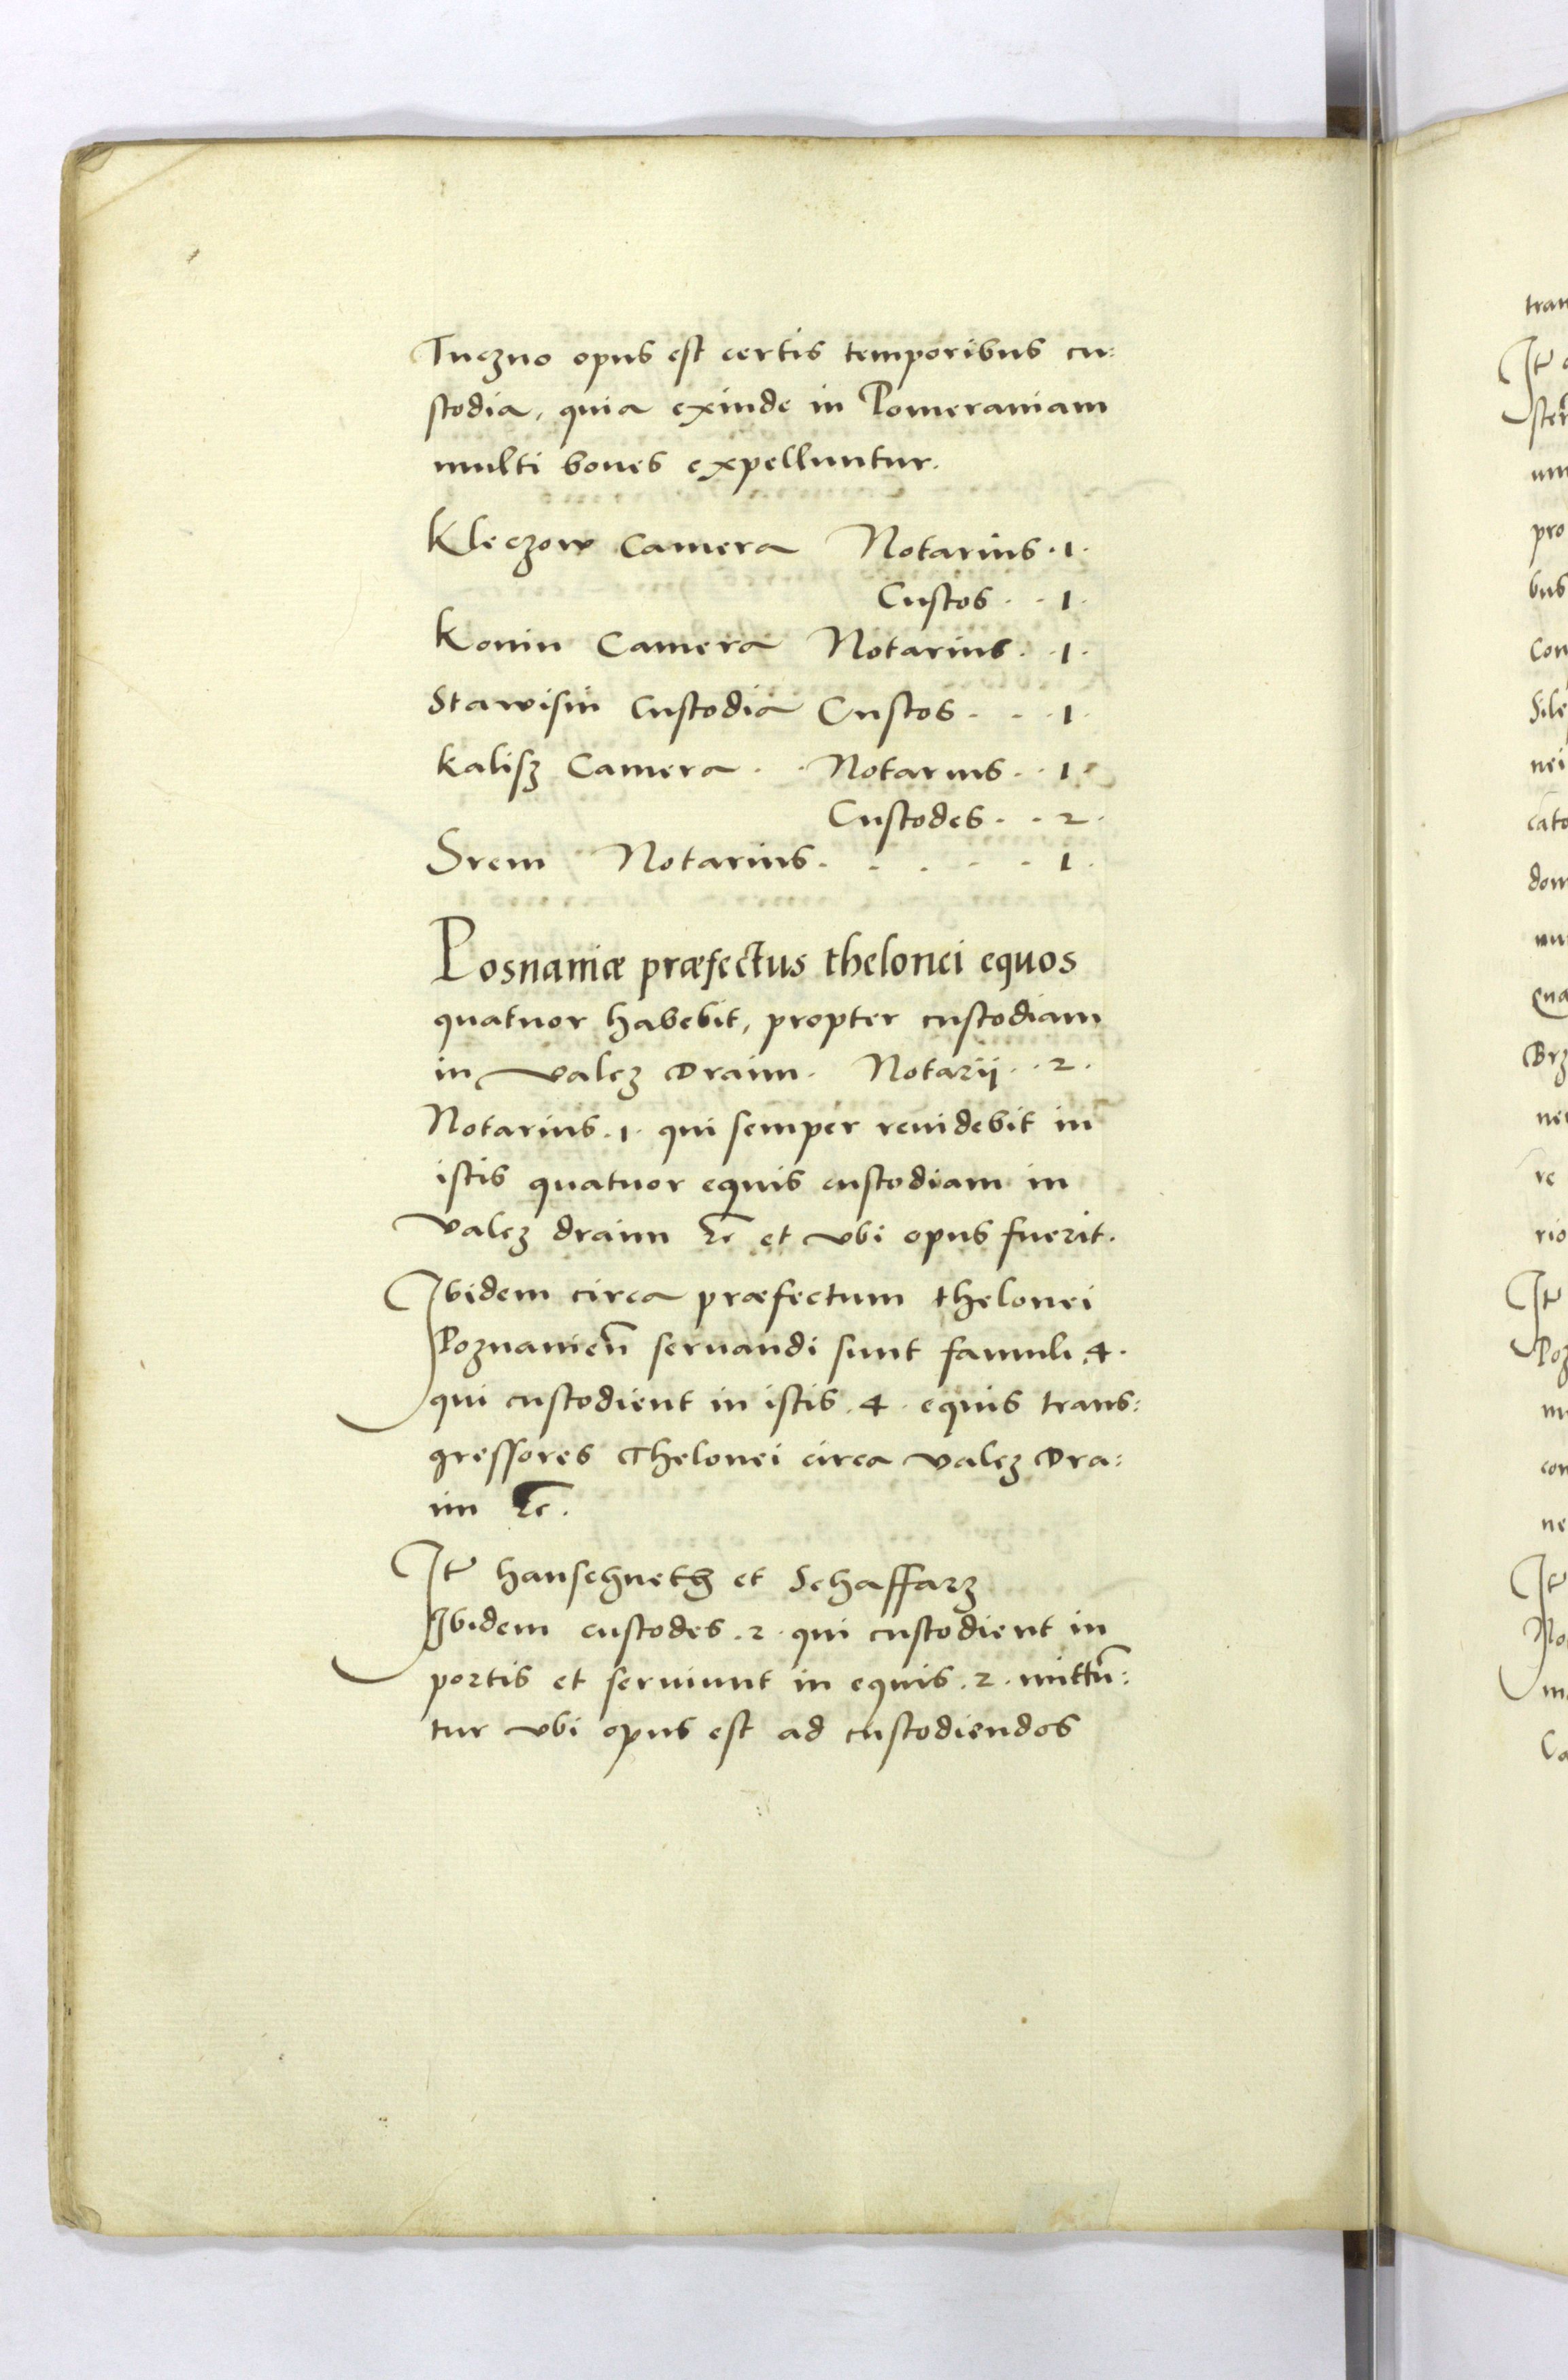 Tuczno opus est certis temporibus cu:
stodia, quia exinde in Pomeraniam
multi boues expelluntur.
Kleczow Camera Notarius . 1 .
Custos . . 1 .
Konin Camera Notarius . . 1 .
Stawisin Custodia Custos . . . 1 .
Kalisz Camera . . Notarius . . 1 .
Custodes . . 2 .
Srem Notarius . . . . . 1 .
Posnaniæ præfectus thelonei equos
quatuor habebit, propter custodiam
in Valcz Draim . Notarij . . 2 .
Notarius . 1 . qui semper reuidebit in
istis quatuor equis custodiam in
Valcz draim &c et vbi opus fuerit .
Ibidem circa præfectum thelonei
Poznanien̄ seruandi sunt famuli . 4 .
qui custodient in istis . 4 . equis trans:
gressores Thelonei circa Valcz Dra:
im &c .
It hanschneth et Schaffarz
Ibidem custodes . 2 . qui custodient in
portis et seruiunt in equis . 2 . mittū:
tur vbi opus est ad custodiendos